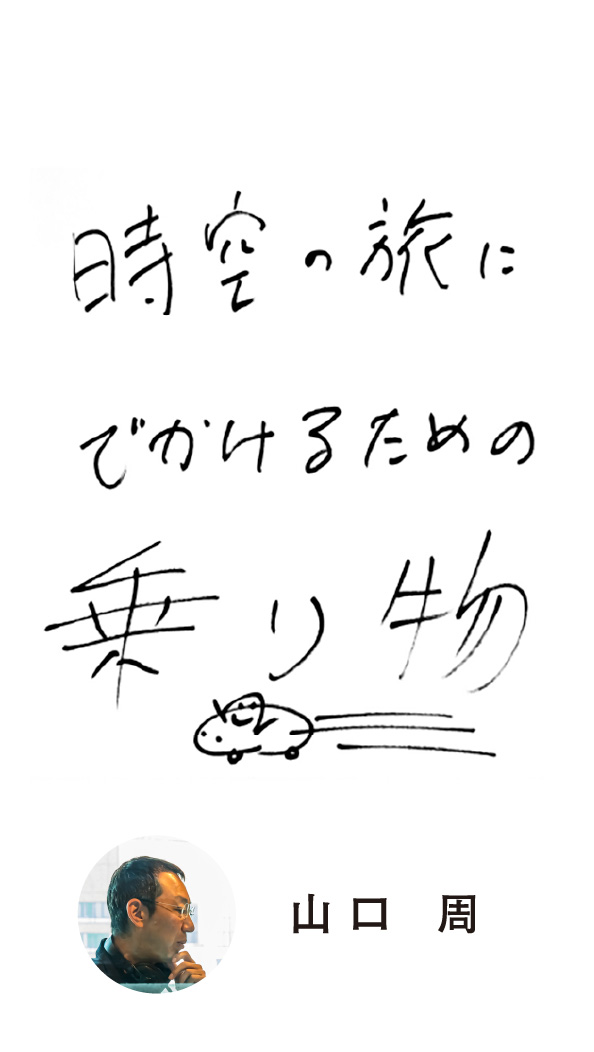 時空の旅に
でかけるための
乗り物
山口 周